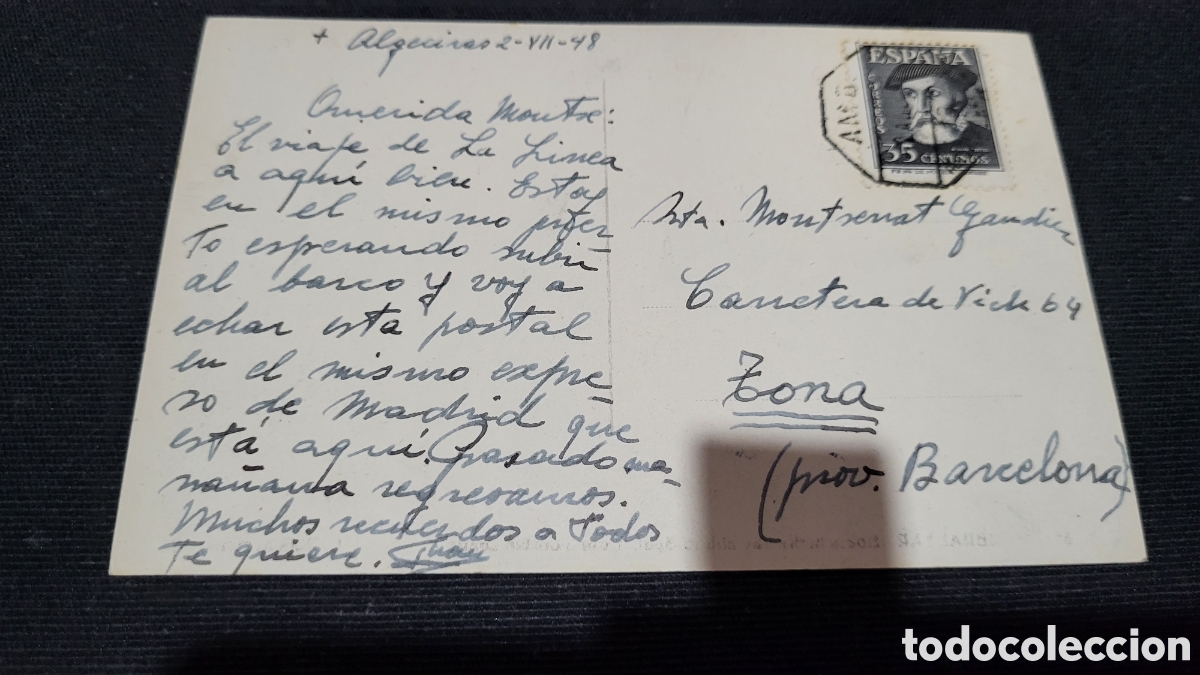 + Algeciras 2-VII-48
Querida Montse:
El viaje de La Linea
a aquí bien. Estoy
en el mismo puer-
to esperando subir
al barco y voy a
echar esta postal
en el mismo expre-
so de Madrid que
está aquí. Pasado ma-
ñana regresamos.
Muchos recuerdos a todos
Te quiere.
ESPAÑA
CORREOS
35 CENTIMOS
AMB
Srta. Montserrat
Carretera de Vich 64
Tona
(prov. Barcelona)
todocoleccion